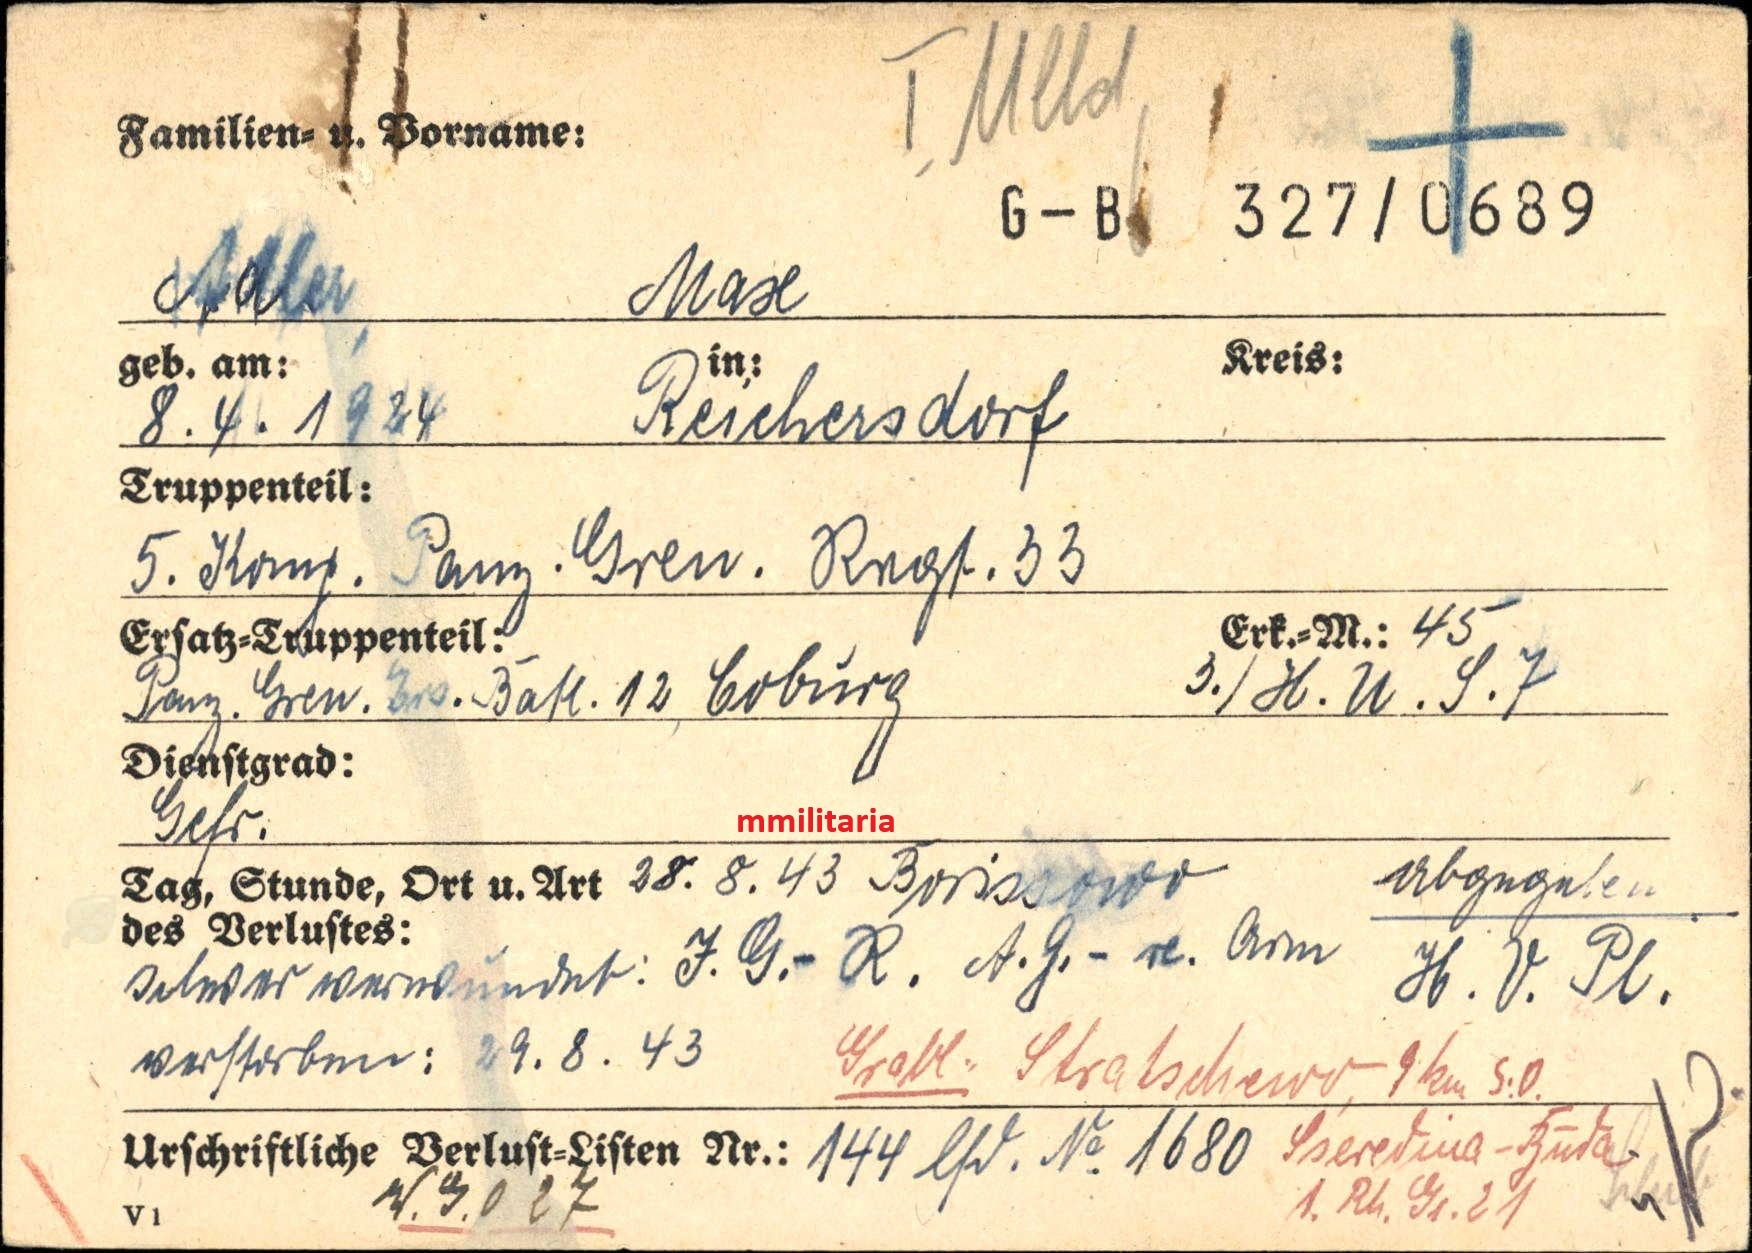 I, Ulld
Familien- u. Vorname:
G-B 327/0689
Adler, Max
geb. am: in: Kreis:
8.4.1924 Reichersdorf
Truppenteil:
5. Komp. Panz. Gren. Rgt. 33
Ersatz-Truppenteil: Erk.-M.: 45
Panz. Gren. Ers. Batl. 12 Coburg 3./H.U.S.7
Dienstgrad:
Gefr.
mmilitaria
Tag, Stunde, Ort u. Art 28.8.43 Borissowo abgegeben
des Verlustes:
schwer verwundet: J.G.- R. A.G.- re. Arm H.V.Pl.
verstorben: 29.8.43 Grabl: Stratschewo, 9 km s.o.
Urschriftliche Verlust-Listen Nr.: 144 lfd. No. 1680 Sseredina-Buda
1. Rh. Gr. 21
W.G.027
V 1